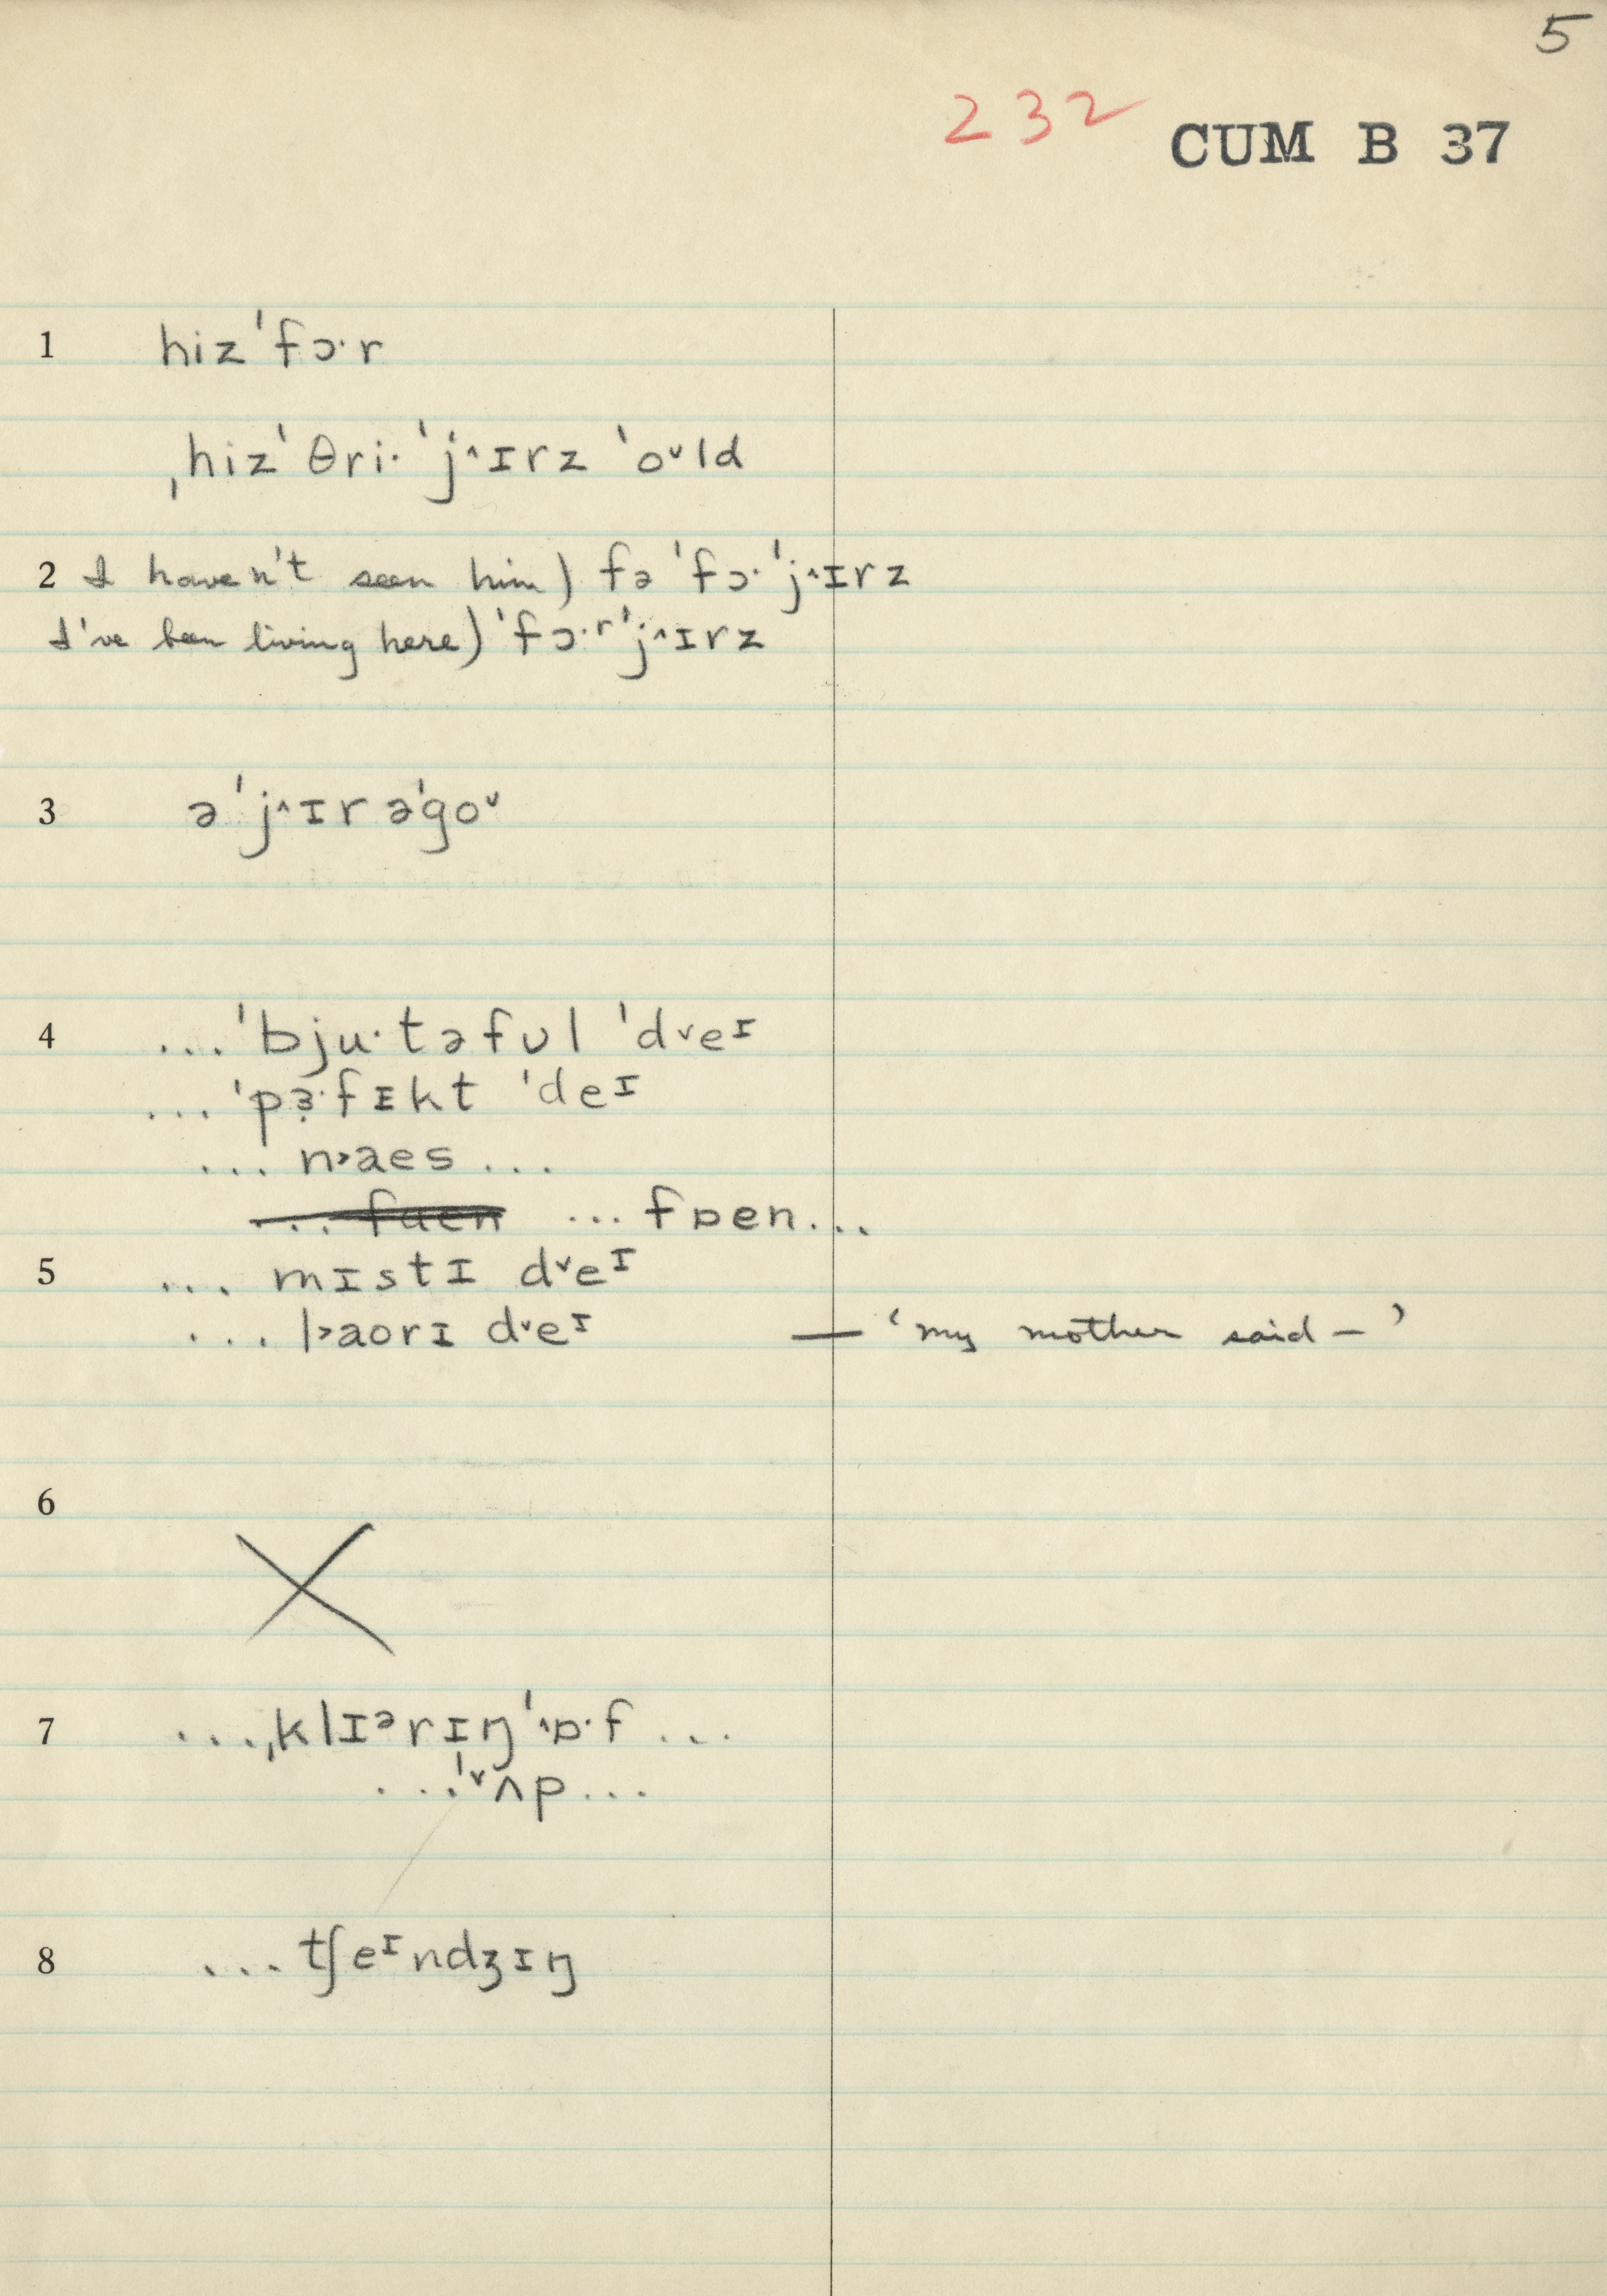 5
232 CUM B 37
1 hizˈfɔ·r
ˌhizˈθri·ˈj˄ɪrz ˈo˅ld
2 I haven't seen him) fəˈfɔ·ˈj˄ɪrz
I've been living here) ˈfɔ·ʳˈj˄ɪrz
3 əˈj˄ɪrəˈgo˅
4 ...ˈbju·təfʊl ˈd˅eᶦ
...ˈpɜ·fɪkt ˈdeᶦ
... n˃aes ...
... faen ... fɒen...
5 ... mɪstɪ d˅eᶦ
... l˃aorɪ d˅eᶦ — ‘my mother said –’
6
7 ...ˌklɪᵊrɪŋˈ˄ɒ·f ...
...ˈ˅ʌp...
8 ... tʃeᶦndʒɪŋ